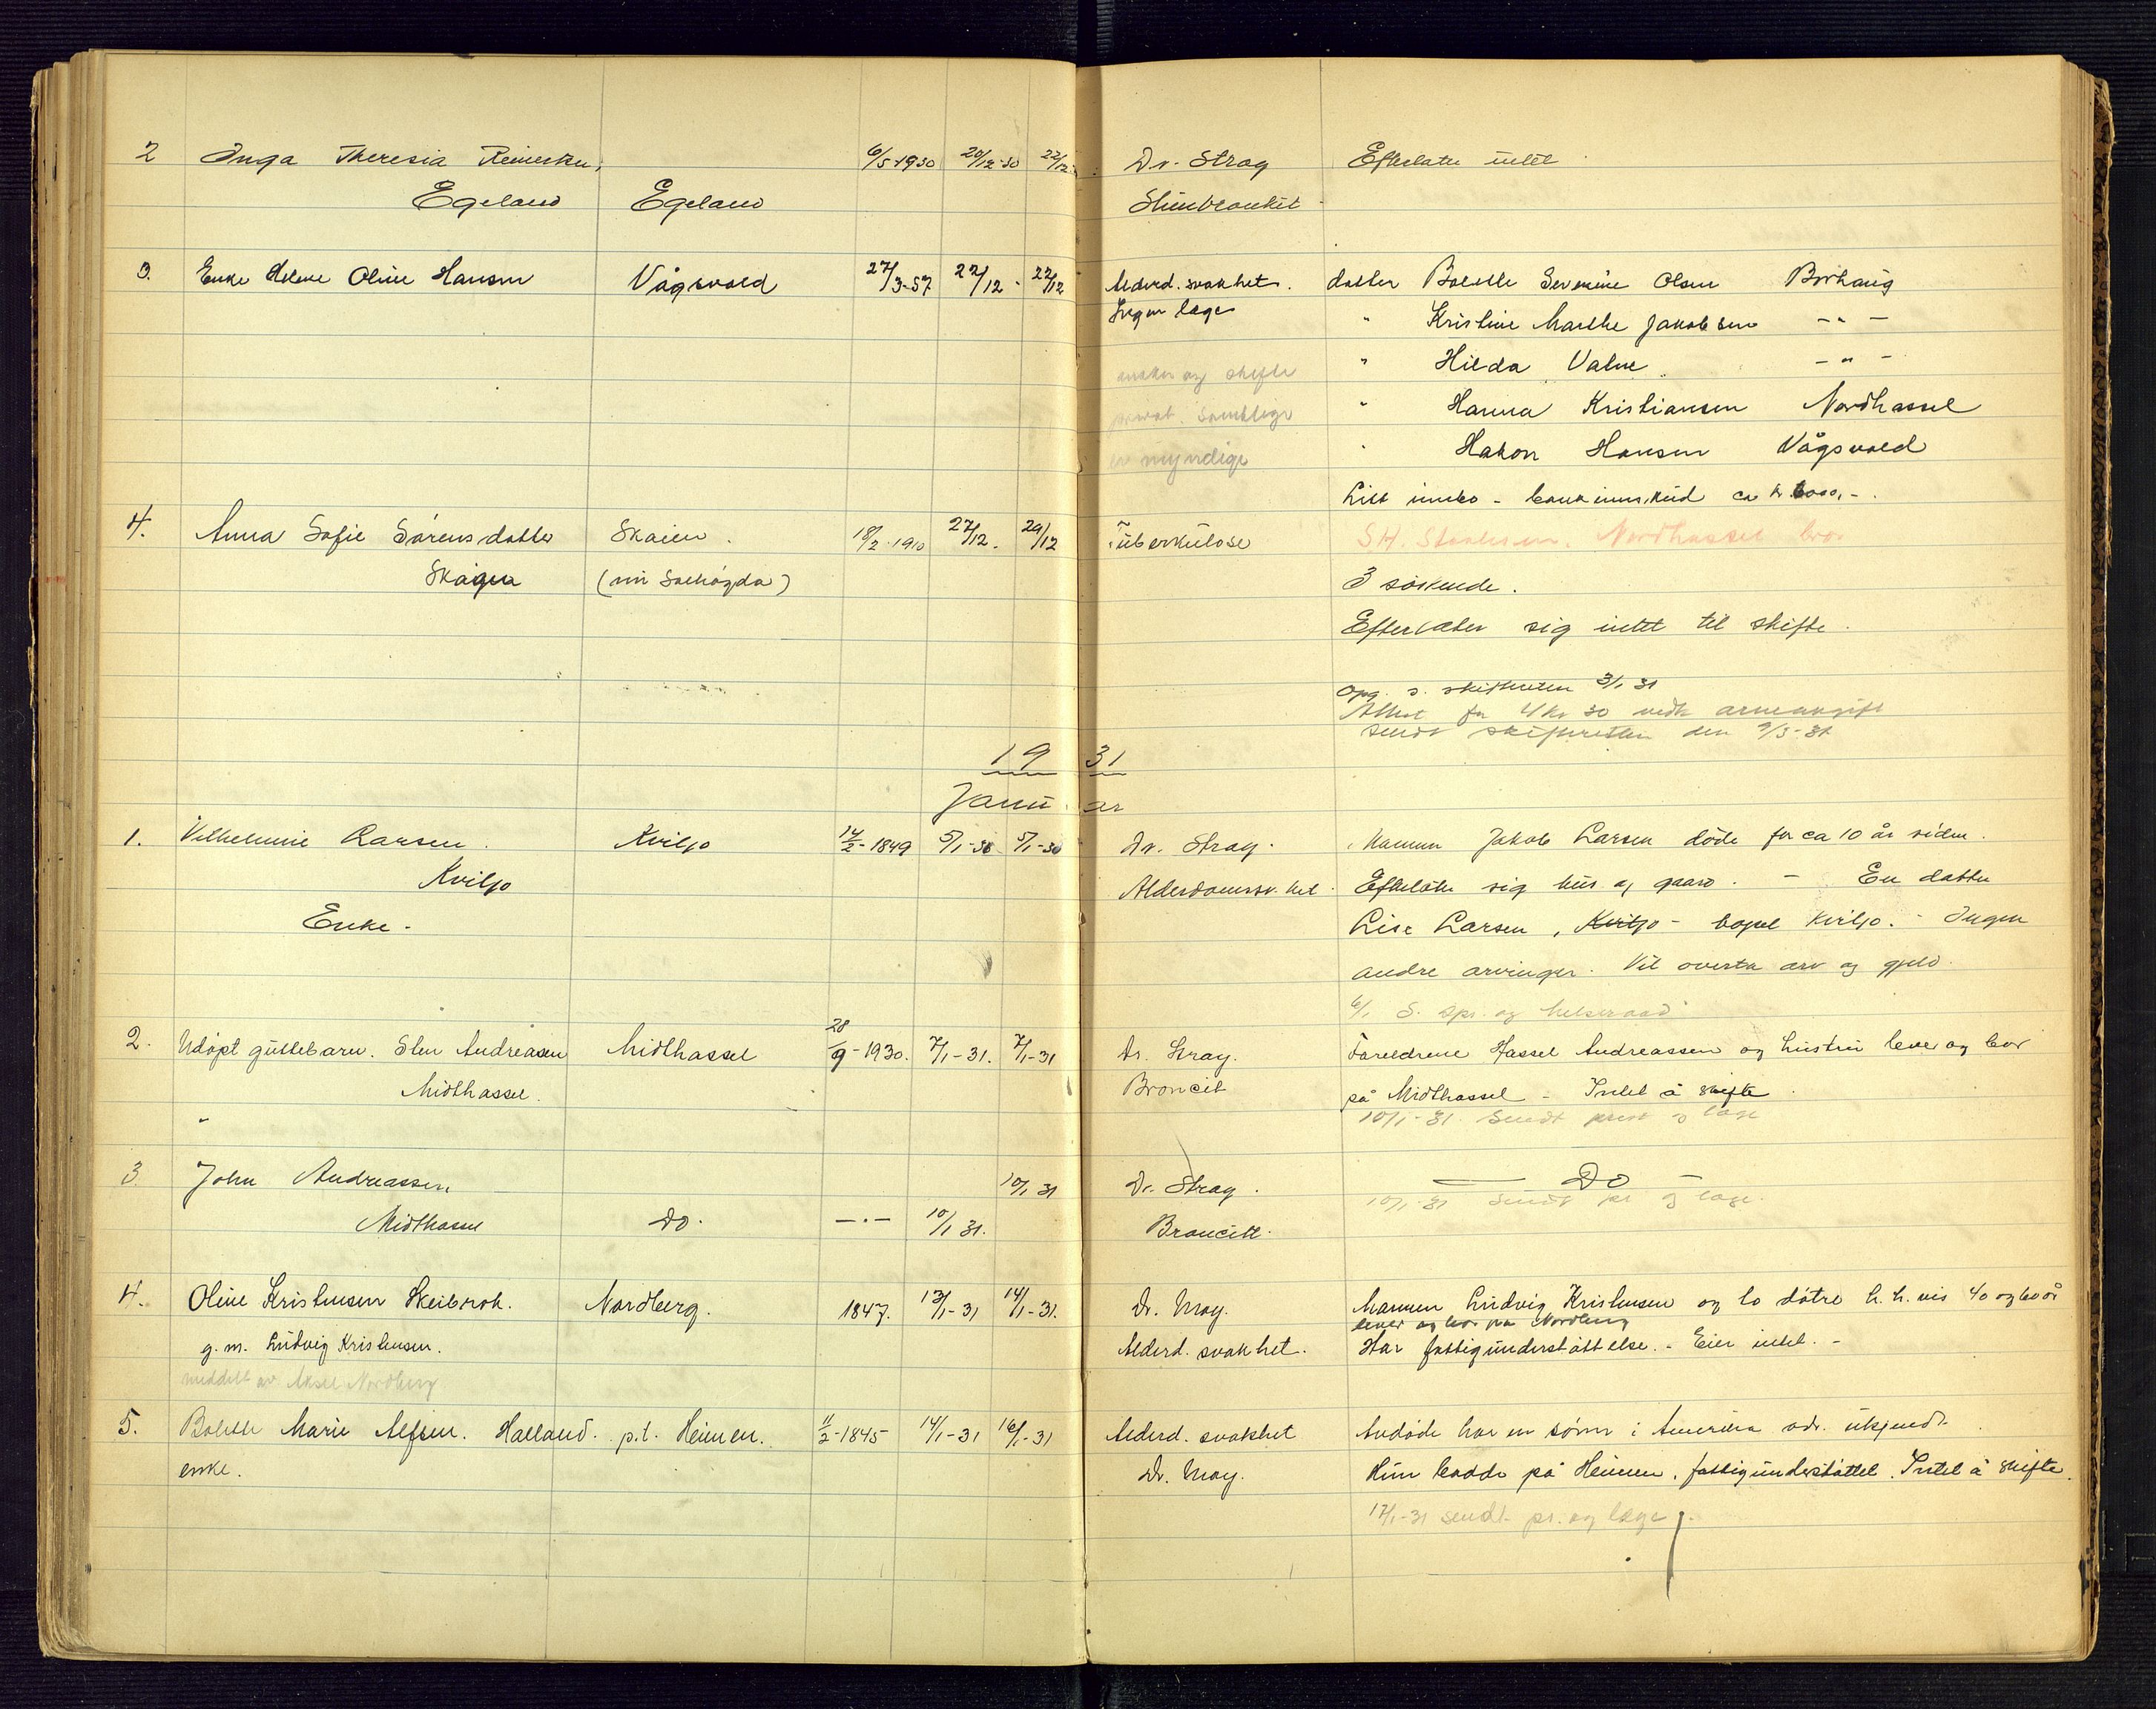 2 Inga Theresia Reinertsen, 6/5-1930 20/12-30 22/12 Dr. Stray Efterlater intet
Egeland Egeland
3. Enke Helene Oline Hansen Vågsvold 27/3-57 22/12 - 22/12 Alderd. svakhet. datter Bolette Severine Olsen Borhaug
Ingen læge " Kristine Marthe Jakobsen - " -
ønsker og skifte " Hilda Valne - " -
privat. Samtlige " Hanna Kristiansen Nordhassel
er myndige " Hakon Hansen Vågsvold
Litt innbo - bankinnskud ca kr.
4. Anna Sofie Sørensdatter Skaien. 18/2-1910 27/12. 29/12 Tuberkulose Nordhassel bror
Skagen 3 søskende.
Efterlater sig intet til skifte.
Opg. s. skifteretten 3/1 31
Attest for 4 kr 30 vedk arveavgift
sendt skifteretten den 9/3-31
1931
Januar
1. Vilhelmine Larsen. Kviljo 14/2-1849 5/1-30 5/1-30 Dr. Stray. Mannen Jakob Larsen døde for ca 10 år siden.
Kviljo Alderdomssv.het. Efterlater sig hus og gaard. - En datter
Enke. Lise Larsen, Kviljo - bopel Kviljo. - Ingen
andre arvinger. Vil overta arv og gjeld.
6/1 S. spr. og helseraad
2. Udøpt guttebarn. Sten Andreasen Midthassel 28/9-1930. 7/1-31. 7/1-31 Dr. Stray. Foreldrene Hassel Andreassen og hustru lever og bor
Midthassel. Broncit på Midthassel - Intet å skifte.
10/1-31 Sendt prest og læge
3 John Andreassen 10/1 31 Dr. Stray. — Do —
10/1-31 Sendt pr og læge.
Midthassel Do. -"- 10/1 31. Broncitt.
4. Oline Kristensen Skeibrok. Nordberg. 1847. 13/1-31 14/1-31. Dr. May. Mannen Ludvig Kristensen og to døtre h.h.vis 40 og 60 år
lever og bor på Nordberg
g.m. Ludvig Kristensen. Alderd. svakhet. Har fattigunderstøttelse. - Eier intet. -
meddelt av Aksel Nordberg
5. Bolette Marie Alfsen. Halland. p.t. Heimen. 11/2-1845 14/1-31 16/1-31 Alderd. svakhet Avdøde har en sønn i Amerika adr. ukjendt.
enke. Dr. May. Hun bodde på Heimen, fattigunderstøttet. Intet å skifte.
17/1-31 sendt pr. og læge